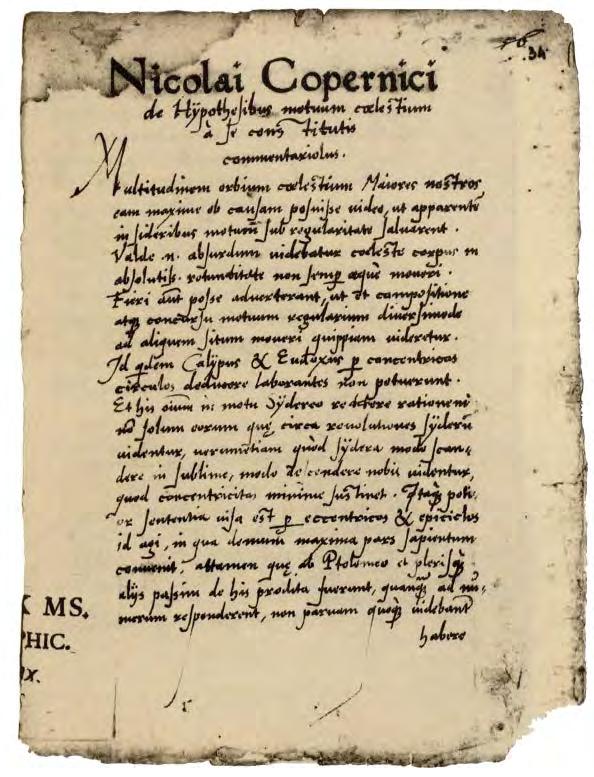 34
Nicolai Copernici
de Hÿpothesibus motuum cœlestium
à se constitutis
commentariolus.
Multitudinem orbium cœlestium Maiores nostros
eam maxime ob causam posuisse video, ut apparentē
in sideribus motum sub regularitate salvarent.
Valde .n. absurdum videbatur cœleste corpus in
absolutiss. rotunditate non semp æque moveri.
Fieri aūt posse adverterant, ut et compositione
atq concursu motuum regularium diversimode
ad aliquem situm moveri quippiam videretur.
Id qdem Calypus & Eudoxus p concentricos
circulos deducere laborantes non potuerunt.
Et his oium in motu sydereo reddere rationem
nō solum eorum quę circa revolutiones syderū
videntur, verumetiam quod sydera modo scan-
dere in sublime, modo descendere nobis videntur,
quod concentricitas minime sustinet. Itaq poti-
or sententia visa est p eccentricos & epiciclos
id agi, in qua demum maxima pars sapientum
convenit. attamen quę ab Ptolomeo et plerisq
alijs passim de his prodita fuerunt, quanq ad nu-
merum responderent, non parvam quoq videbant
habere
X MS.
PHIC.
IX.